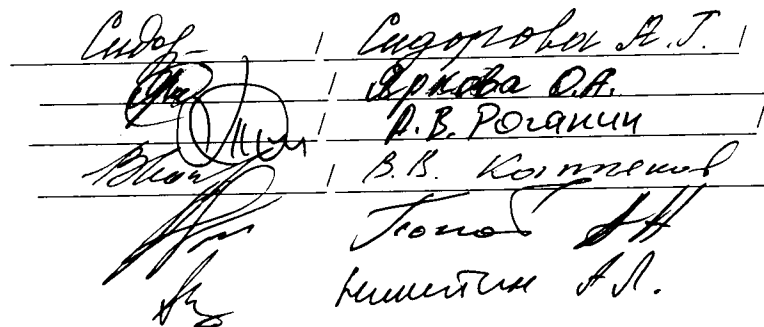 Сидор / Сидорова А.Г. /
/ Яркова О.А.
/ А.В. Роганин /
/ В.В. Коптяков
Попов АН
Никитин А.Л.